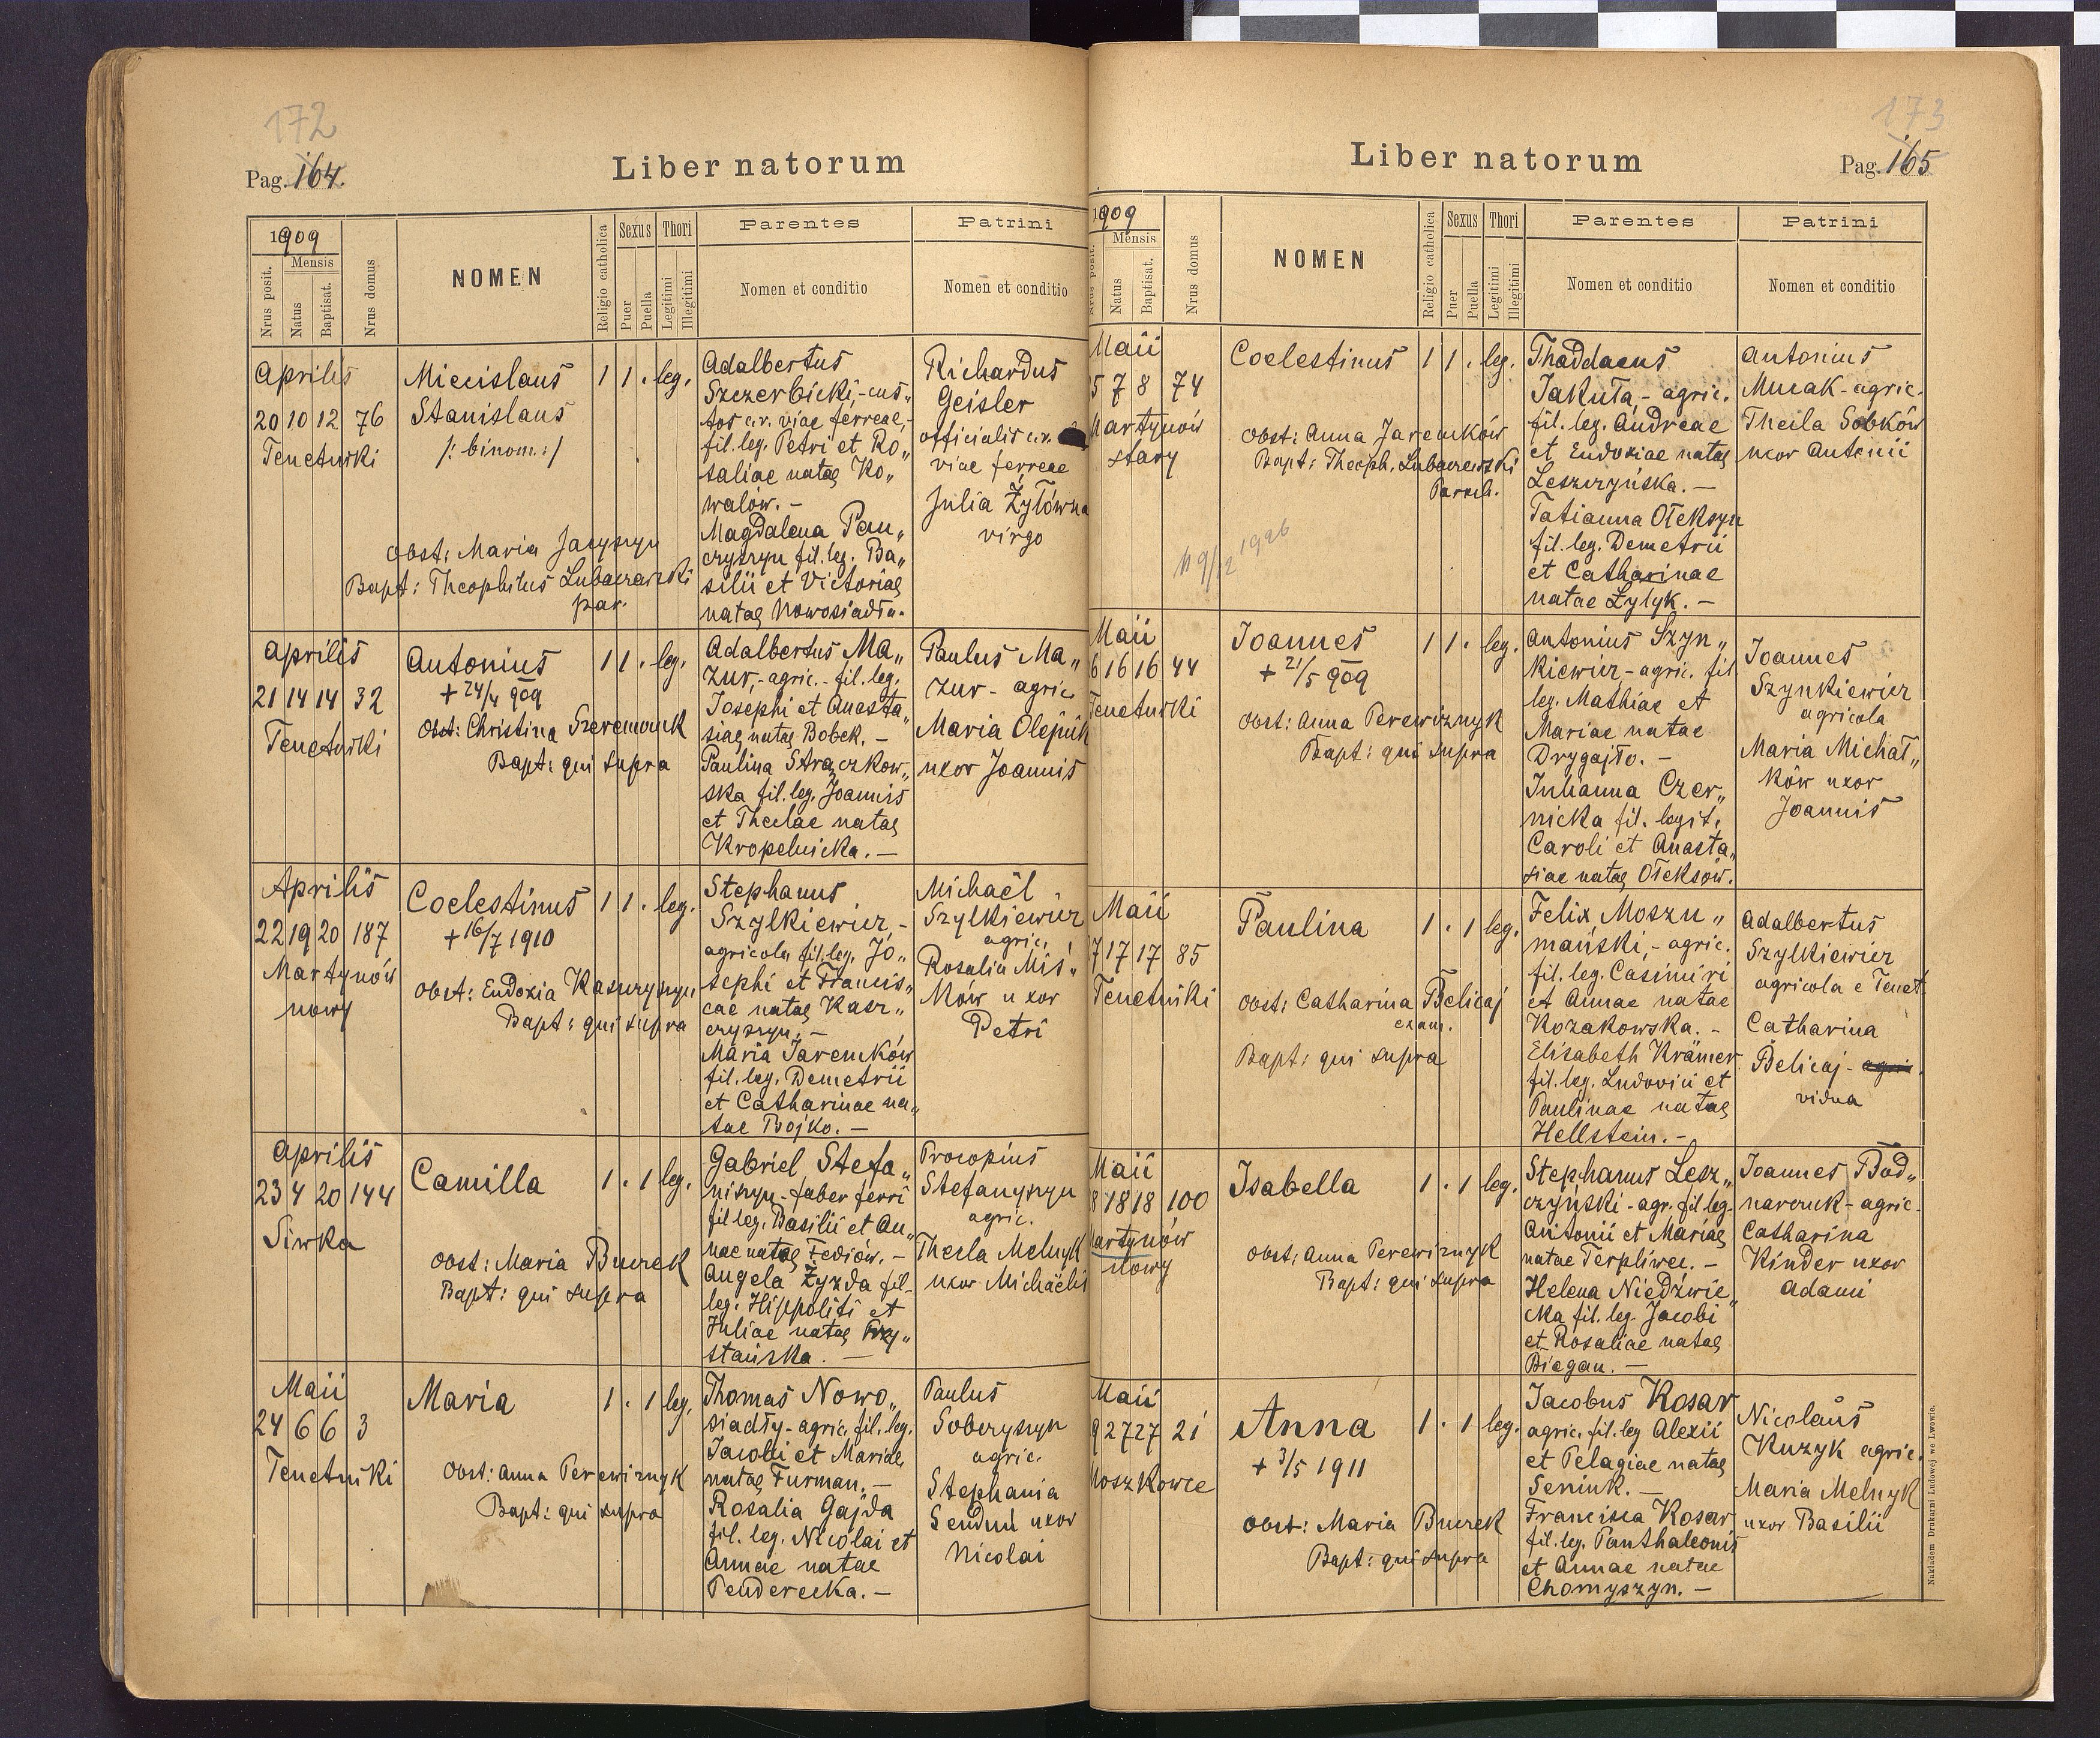 172
Pag. 164.
Liber natorum
1909
Nrus posit.
Mensis
Natus
Baptisat.
Nrus domus
NOMEN
Religio catholica
Sexus
Puer
Puella
Thori
Legitimi
Illegitimi
Parentes
Nomen et conditio
Patrini
Nomen et conditio
Aprilis
20 10 12 76
Tenetniki
Miecislaus
Stanislaus
/: binom :/
1 1 . leg.
Obst: Maria
Bapt: Theophilus Lubaczewski
par.
Adalbertus
Szczerbicki,- cus„
tos c.r. viae ferreae,-
fil. leg. Petri et Ro„
saliae natae Ko„
walów. -
Magdalena Pan„
czyszyn fil. leg. Ba„
silii et Victoriae
natae Nowosiadła.
Richardus
Geisler
officialis c.r.
viae ferreae
Julia Żyłówna
virgo
Aprilis
21 14 14 32
Tenetniki
Antonius
+ 24/4 909
1 1 . leg.
Obst: Christina Szeremczuk
Bapt: qui supra
Adalbertus Ma„
zur,- agric.- fil. leg.
Josephi et Anasta„
siae natae Bobek. -
Paulina Strączkow„
ska fil. leg. Joannis
et Theclae natae
Kropelnicka. -
Paulus Ma„
zur - agric.
Maria Olejnik
uxor Joannis
Aprilis
22 19 20 187
Martynów
nowy
Coelestinus
+ 16/7 1910
1 1 . leg.
Obst: Eudoxia Kasczyszyn
Bapt: qui supra
Stephanus
Szylkiewicz,-
agricola fil. leg. Jo„
sephi et Francis„
cae natae Kasz„
czyszyn. -
Maria Jaremków
fil. leg. Demetrii
et Catharinae na„
tae Bojko. -
Michaël
Szylkiewicz
agric.
Rosalia Miś„
ków uxor
Petri
Aprilis
23 4 20 144
Siwka
Camilla
1 . 1 leg.
Obst: Maria Burek
Bapt: qui supra
Gabriel Stefa„
niszyn - faber ferri
fil leg. Basilii et An„
nae natae Fediów. -
Angela Żyzda fil.
leg. Hippoliti et
Juliae natae
stańska. -
Procopius
Stefanyszyn
agric.
Thecla Melnyk
uxor Michaëlis
Maii
24 6 6 3
Tenetniki
Maria
1 . 1 leg.
Obst: Anna Perewiznyk
Bapt: qui supra
Thomas Nowo„
siadły - agric. fil. leg.
Jacobi et Mariae
natae Furman. -
Rosalia Gajda
fil. leg. Nicolai et
Annae natae
Penderecka. -
Paulus
Soberyszyn
agric.
Stephania
uxor
Nicolai
173
Liber natorum
Pag. 165
1909
Nrus posit.
Mensis
Natus
Baptisat.
Nrus domus
NOMEN
Religio catholica
Sexus
Puer
Puella
Thori
Legitimi
Illegitimi
Parentes
Nomen et conditio
Patrini
Nomen et conditio
Maii
5 7 8 74
Martynów
stary
Coelestinus
1 1 . leg.
Obst: Anna Jaremków
Bapt: Theoph. Lubaczewski
Paroch.
1926
Thaddaeus
Jakuta,- agric.
fil. leg. Andreae
et Eudoxiae natae
Leszczyńska. -
Tatianna Ołeksyn
fil. leg. Demetrii
et Catharinae
natae Łylyk. -
Antonius
Murak - agric.
Thecla Sobków
uxor Antonii
Maii
6 16 16 44
Tenetniki
Joannes
+ 21/5 909
1 1 . leg.
Obst: Anna Perewiznyk
Bapt: qui supra
Antonius Szyn„
kiewicz - agric. fil
leg. Mathiae et
Mariae natae
Drygajło. -
Julianna Czer„
nicka fil. legit.
Caroli et Anasta„
siae natae Ołeksów.
Joannes
Szynkiewicz
agricola
Maria Michał„
ków uxor
Joannis
Maii
7 17 17 85
Tenetniki
Paulina
1 . 1 leg.
Obst: Catharina Belicaj
exam.
Bapt: qui supra
Felix Moszu„
mański,- agric.
fil. leg. Casimiri
et Annae natae
Kozakowska. -
Elisabeth Krämer
fil. leg. Ludovici et
Paulinae natae
Hellstein. -
Adalbertus
Szylkiewicz
agricola e Tenet.
Catharina
Belicaj - agric.
vidua
Maii
8 18 18 100
Martynów
nowy
Isabella
1 . 1 leg.
Obst: Anna Perewiznyk
Bapt: qui supra
Stephanus Lesz„
czyński - agr. fil leg.
Antonii et Mariae
natae Terpliwec. -
Helena Niedźwie„
cka fil. leg. Jacobi
et Rosaliae natae
Biegan. -
Joannes Bod„
narczuk - agric.
Catharina
Kinder uxor
Adami
Maii
9 27 27 21
Moszkowce
Anna
+ 3/5 1911
1 . 1 leg.
Obst: Maria Burek
Bapt: qui supra
Jacobus Kosar
agric. fil. leg Alexii
et Pelagiae natae
Seniuk. -
Francisca Kosar
fil. leg. Panthaleonis
et Annae natae
Chomyszyn. -
Nicolaus
Kuzyk agric.
Maria Melnyk
uxor Basilii
Nakładem Drukarni Ludowej we Lwowie.